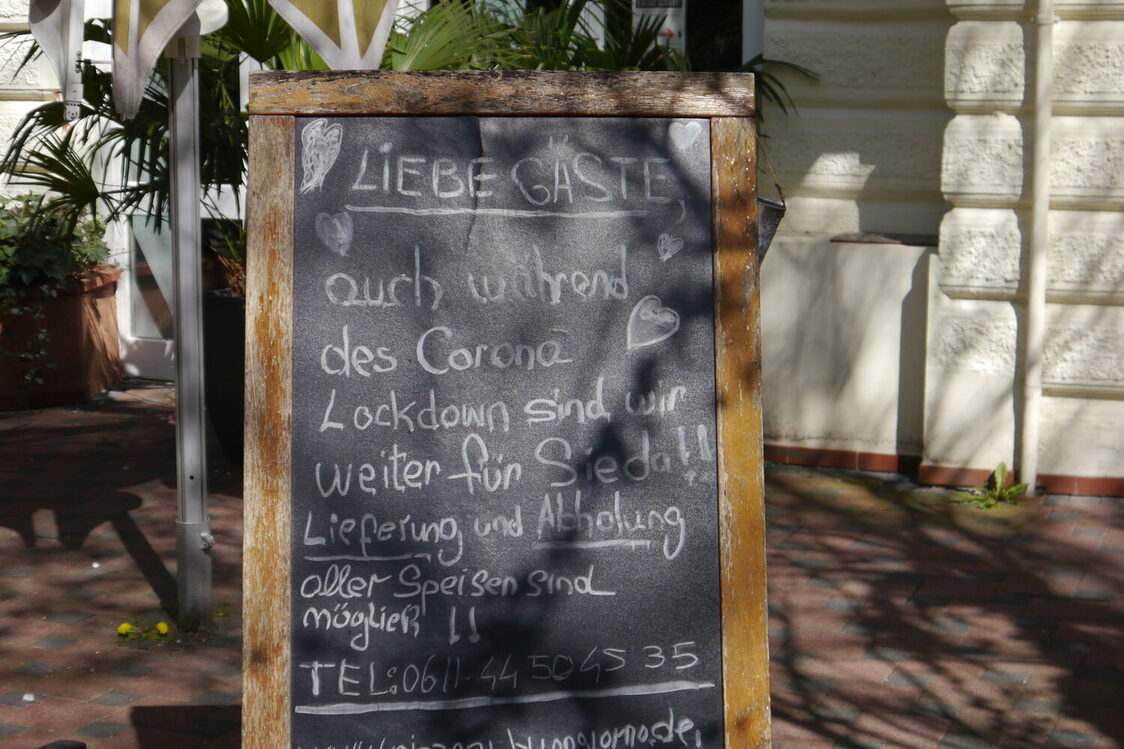 LIEBE GÄSTE,
auch während
des Corona
Lockdown sind wir
weiter für Sie da!!
Lieferung und Abholung
aller Speisen sind
möglich !!
TEL:0611-44 50 45 35